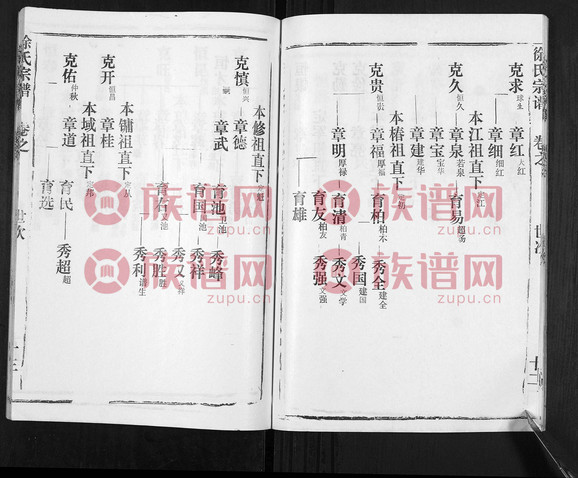 徐氏宗谱
卷之
世次
十二
克求 球生
章红 大红
章细 细红
本江祖直下 定江
克久 恒久
章泉 若泉
育易 超汤
章宝 宝华
章建 建华
本椿祖直下
克贵 恒贵
章福 厚福
育柏 柏木
秀全 建全
秀国 建国
章明 厚禄
育清 柏青
秀文 文学
育友 柏友
秀强 文强
育雄
本修祖直下
克慎 恒兴
章德
章武
育池 卫池
秀峰
育国
秀祥
秀又 文祥
育右
秀胜 胜
秀利 谱生
本镛祖直下
克开 恒昌
章桂
本域祖直下
克佑 仲秋
章道
育民
秀超 超
育选
徐氏宗谱
卷之
世次
十三
族谱网
zupu.cn
族谱网
zupu.cn
族谱网
zupu.cn
族谱网
zupu.cn